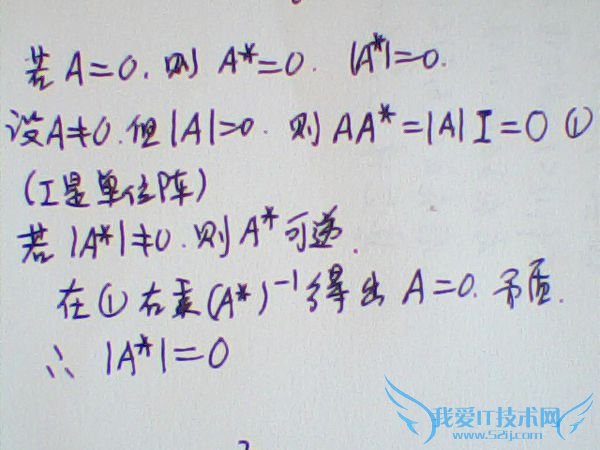 若 A=0. 则 A*=0. |A*|=0.
设A≠0. 但|A|=0. 则 AA*=|A| I=0 ①
(I是单位阵)
若 |A*|≠0. 则A*可逆.
在①右乘(A*)⁻¹得出 A=0. 矛盾.
∴ |A*|=0
我爱IT技术网
www.52ij.com